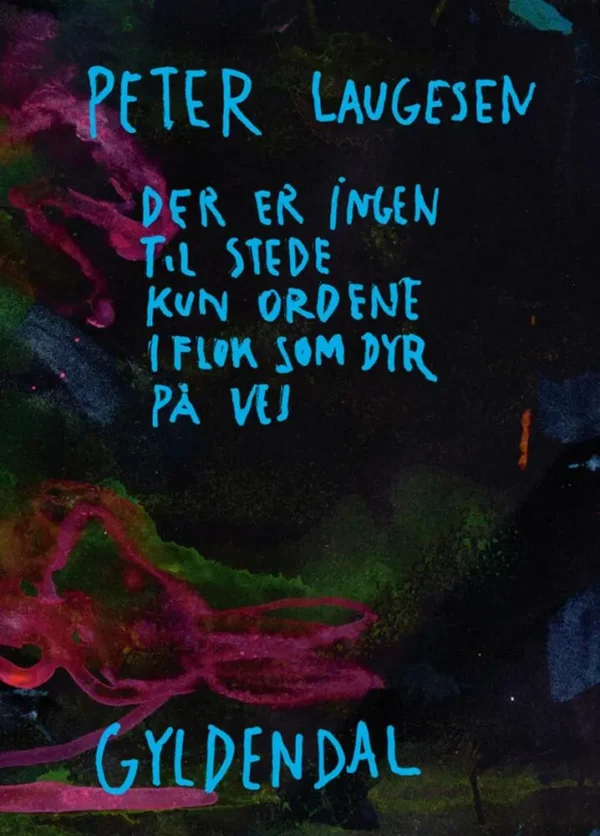 PETER LAUGESEN
DER ER INGEN
TIL STEDE
KUN ORDENE
I FLOK SOM DYR
PÅ VEJ
GYLDENDAL